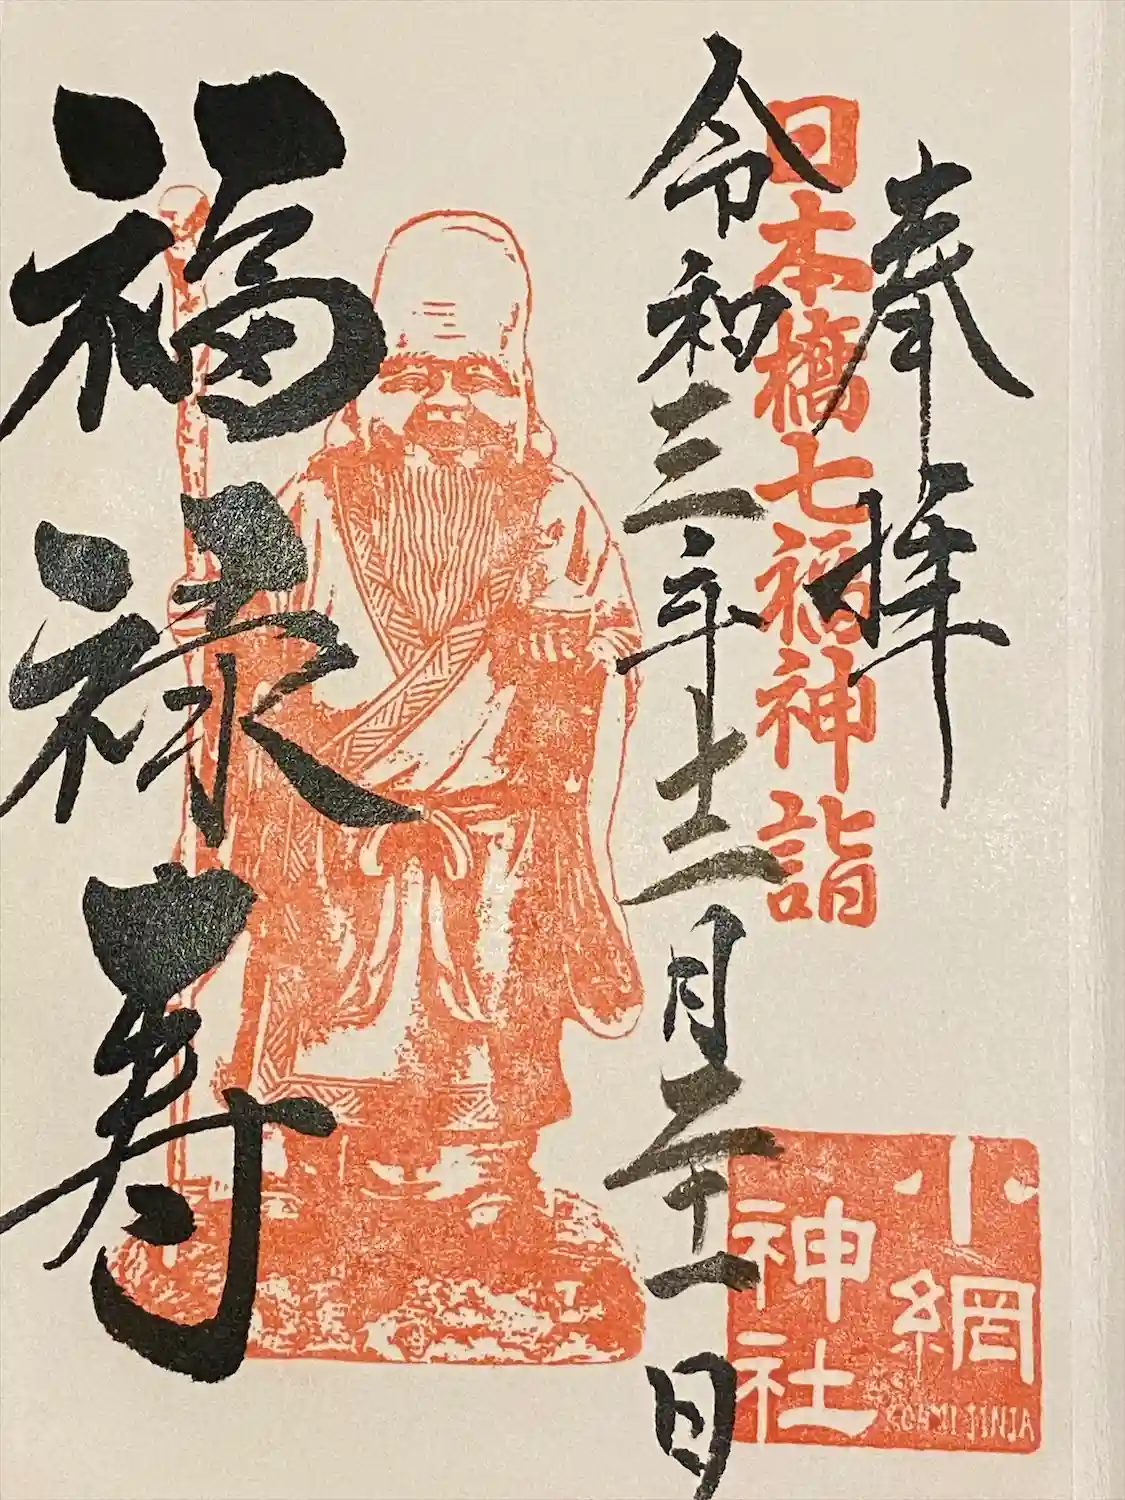 奉拝
日本橋七福神詣
令和三年十二月二十一日
福禄寿
小網
神社
KOAMI JINJA